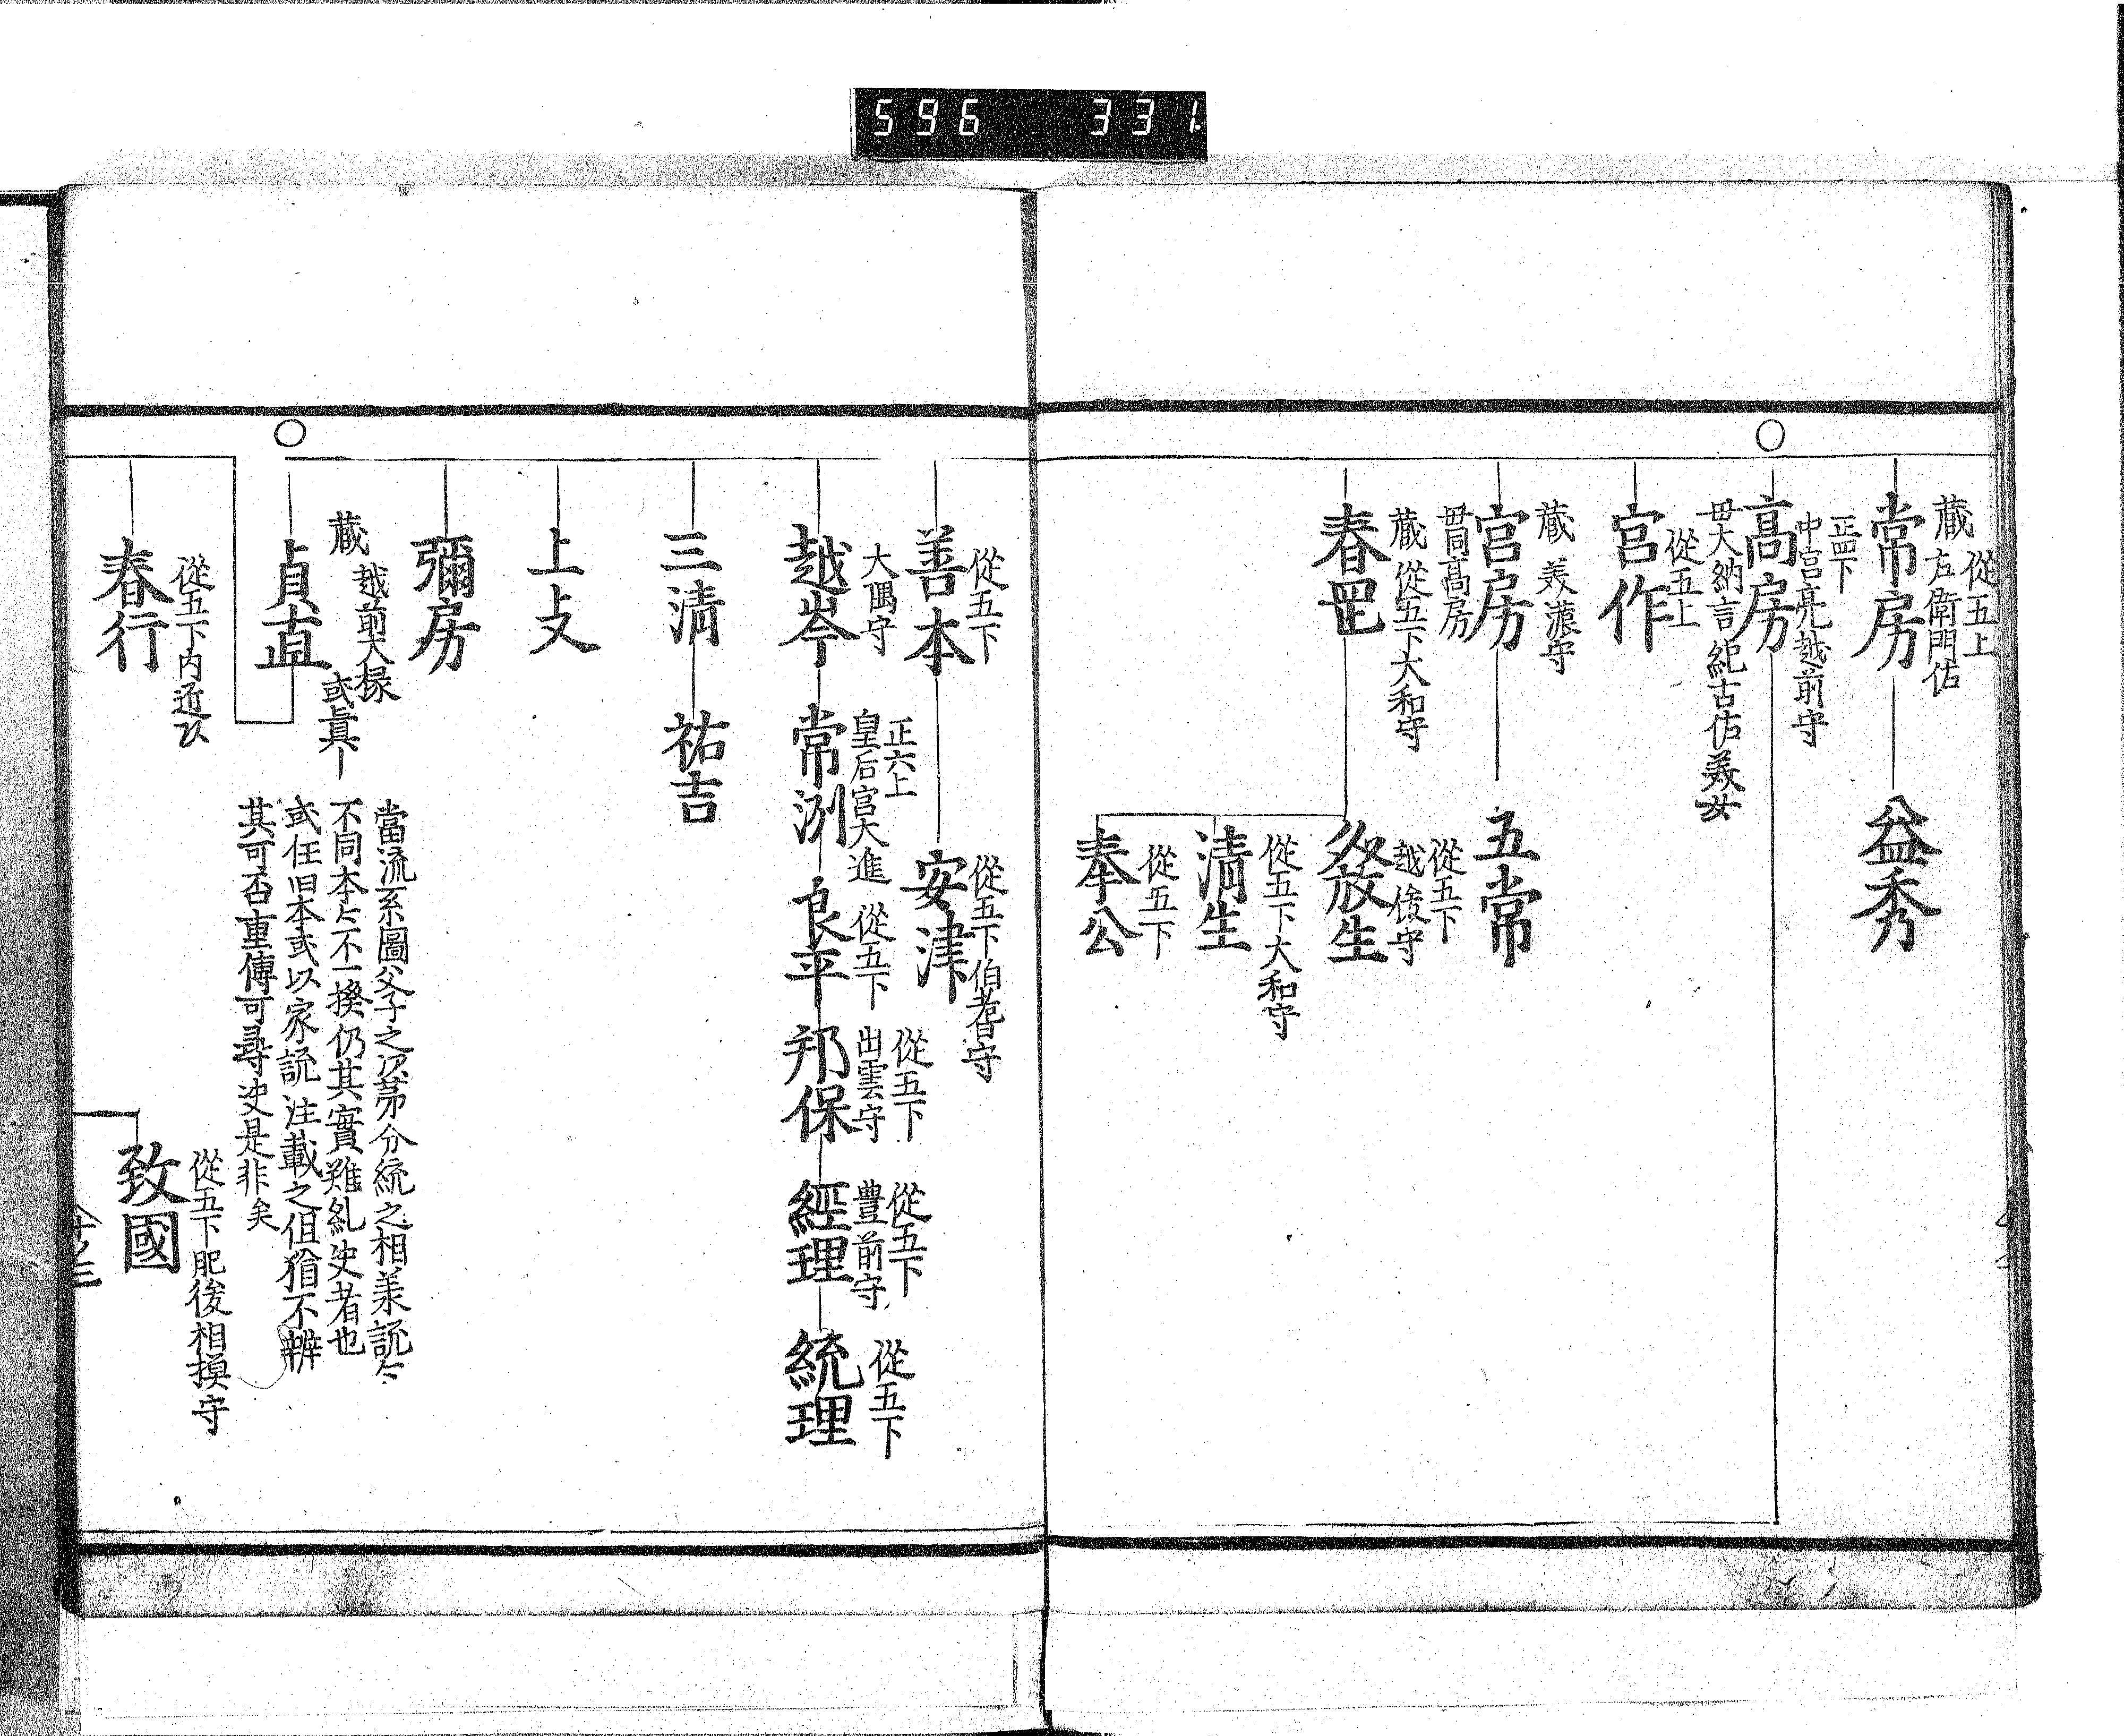 596 331
蔵 從五上
左衛門佐
常房
益秀
正四下
中宮亮越前守
高房
母大納言紀古佐美女
從五上
宮作
蔵 美濃守
宮房
母同高房
五常
蔵 從五下大和守
春岡
從五下
越後守
發生
從五下大和守
清生
從五下
奉公
從五下
善本
從五下伯耆守
安津
大隅守
越岑
正六上
皇后宮大進
常洌
從五下
良平
從五下
出雲守
邦保
從五下
豊前守
經理
從五下
統理
三清
祐吉
上
彌房
蔵 越前大掾
或眞
貞直
當流系圖父子之次第分統之相承説々
不同本々不一揆仍其實難糺决者也
或任旧本或以家説注載之但猶不辨
其可否重傳可尋决是非矣
從五下内匠
春行
從五下肥後相摸守
致國